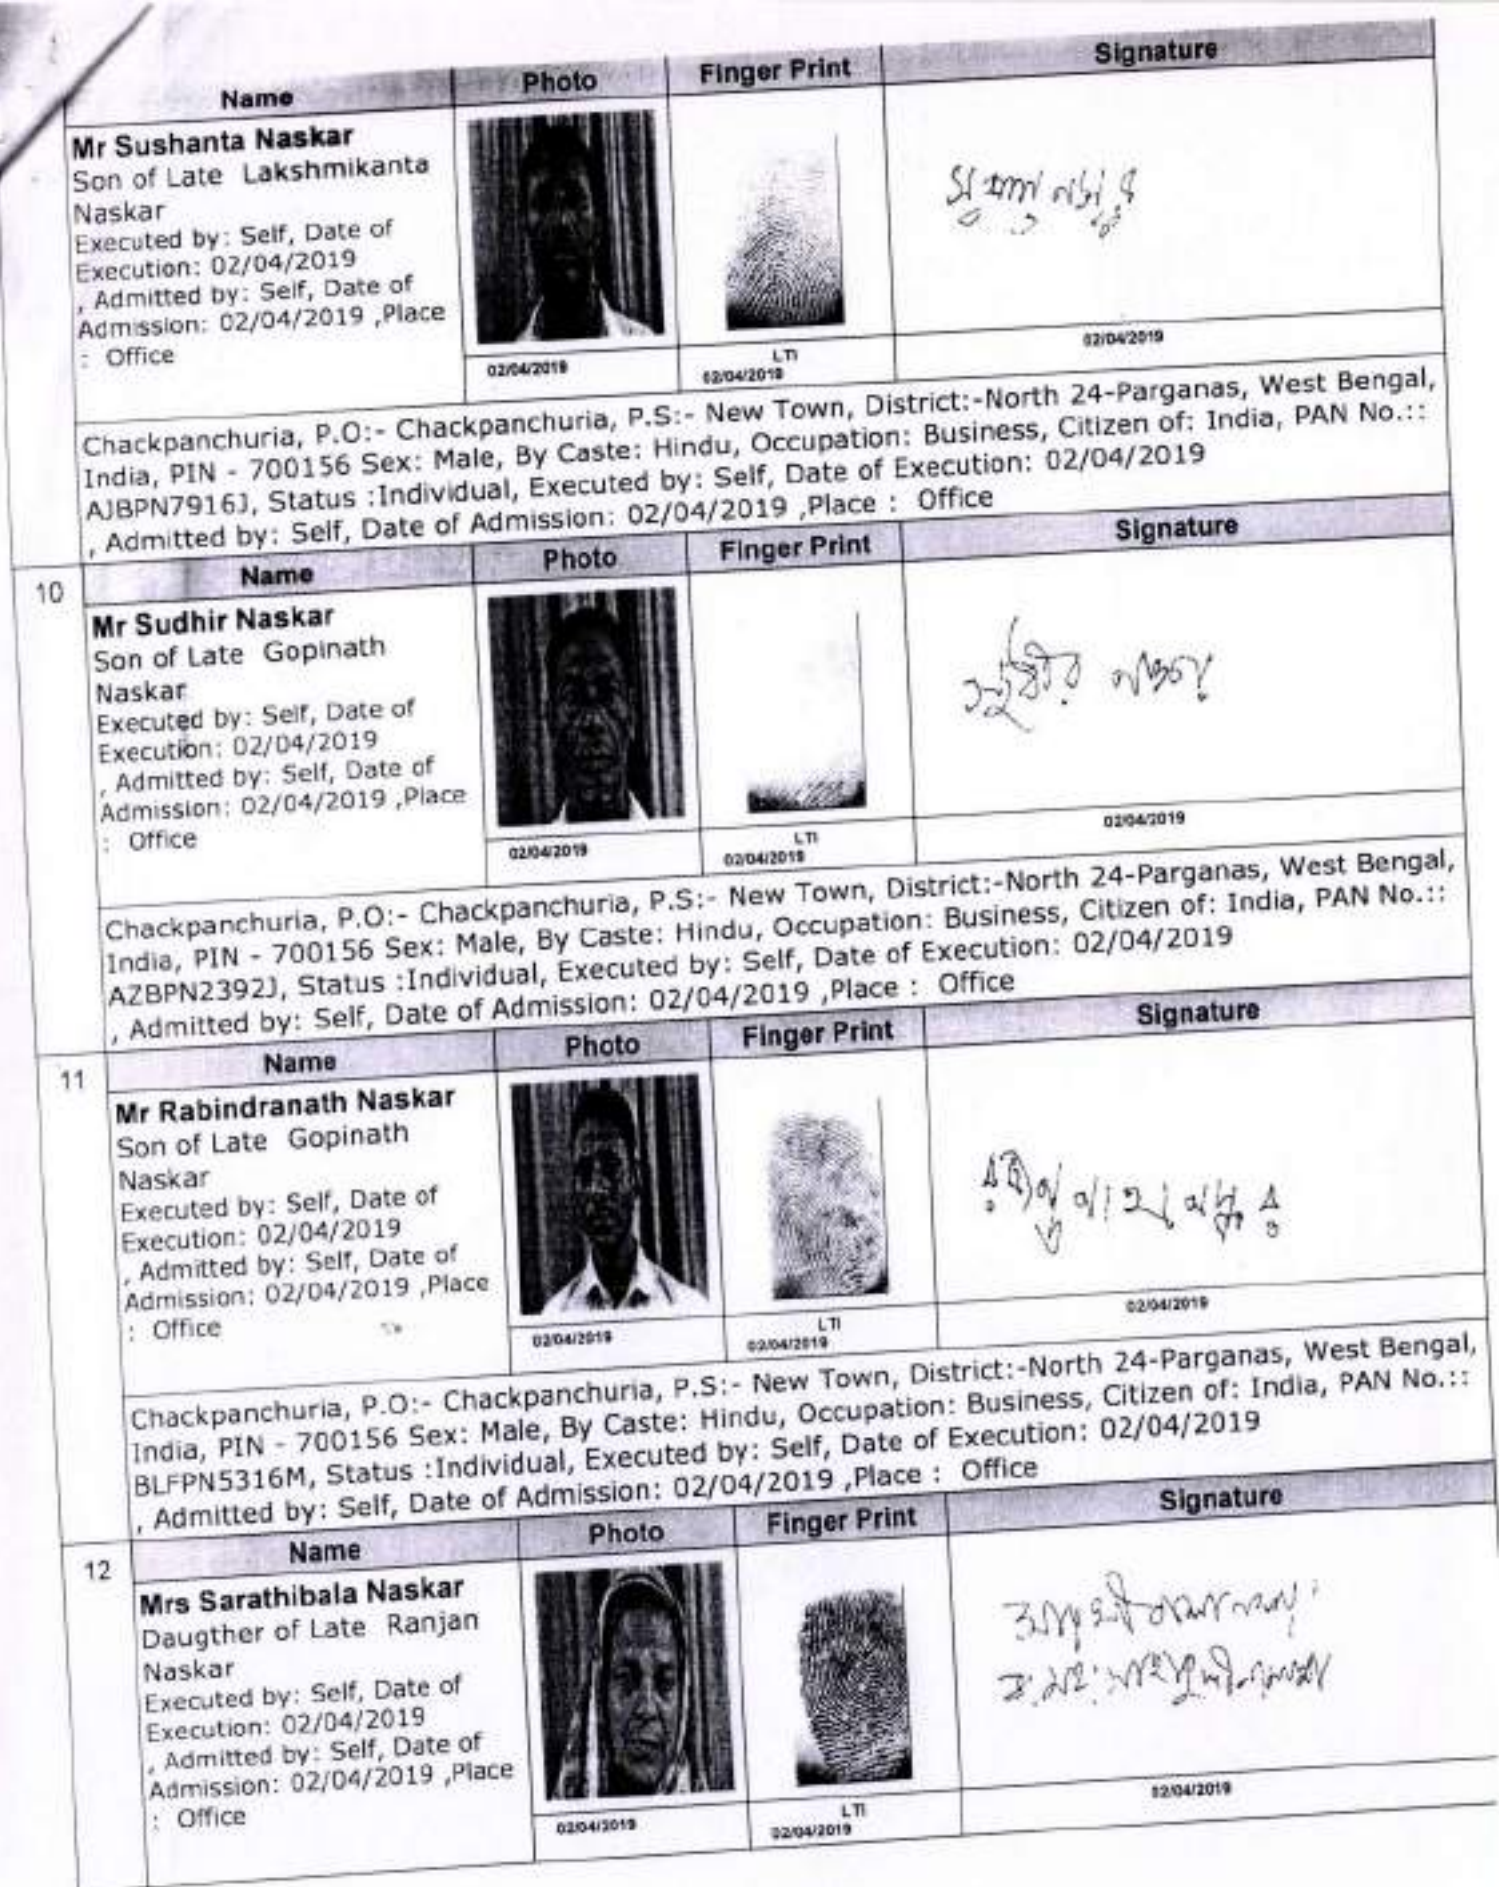 Name Photo Finger Print Signature
Mr Sushanta Naskar
Son of Late Lakshmikanta
Naskar
Executed by: Self, Date of
Execution: 02/04/2019
, Admitted by: Self, Date of
Admission: 02/04/2019 ,Place
: Office
02/04/2019
LTI
02/04/2019
02/04/2019
Chackpanchuria, P.O:- Chackpanchuria, P.S:- New Town, District:-North 24-Parganas, West Bengal,
India, PIN - 700156 Sex: Male, By Caste: Hindu, Occupation: Business, Citizen of: India, PAN No.::
AJBPN7916J, Status :Individual, Executed by: Self, Date of Execution: 02/04/2019
, Admitted by: Self, Date of Admission: 02/04/2019 ,Place : Office
10 Name Photo Finger Print Signature
Mr Sudhir Naskar
Son of Late Gopinath
Naskar
Executed by: Self, Date of
Execution: 02/04/2019
, Admitted by: Self, Date of
Admission: 02/04/2019 ,Place
: Office
সুধীর নস্কর
02/04/2019
LTI
02/04/2019
02/04/2019
Chackpanchuria, P.O:- Chackpanchuria, P.S:- New Town, District:-North 24-Parganas, West Bengal,
India, PIN - 700156 Sex: Male, By Caste: Hindu, Occupation: Business, Citizen of: India, PAN No.::
AZBPN2392J, Status :Individual, Executed by: Self, Date of Execution: 02/04/2019
, Admitted by: Self, Date of Admission: 02/04/2019 ,Place : Office
11 Name Photo Finger Print Signature
Mr Rabindranath Naskar
Son of Late Gopinath
Naskar
Executed by: Self, Date of
Execution: 02/04/2019
, Admitted by: Self, Date of
Admission: 02/04/2019 ,Place
: Office
02/04/2019
LTI
02/04/2019
02/04/2019
Chackpanchuria, P.O:- Chackpanchuria, P.S:- New Town, District:-North 24-Parganas, West Bengal,
India, PIN - 700156 Sex: Male, By Caste: Hindu, Occupation: Business, Citizen of: India, PAN No.::
BLFPN5316M, Status :Individual, Executed by: Self, Date of Execution: 02/04/2019
, Admitted by: Self, Date of Admission: 02/04/2019 ,Place : Office
12 Name Photo Finger Print Signature
Mrs Sarathibala Naskar
Daugther of Late Ranjan
Naskar
Executed by: Self, Date of
Execution: 02/04/2019
, Admitted by: Self, Date of
Admission: 02/04/2019 ,Place
: Office
02/04/2019
LTI
02/04/2019
02/04/2019